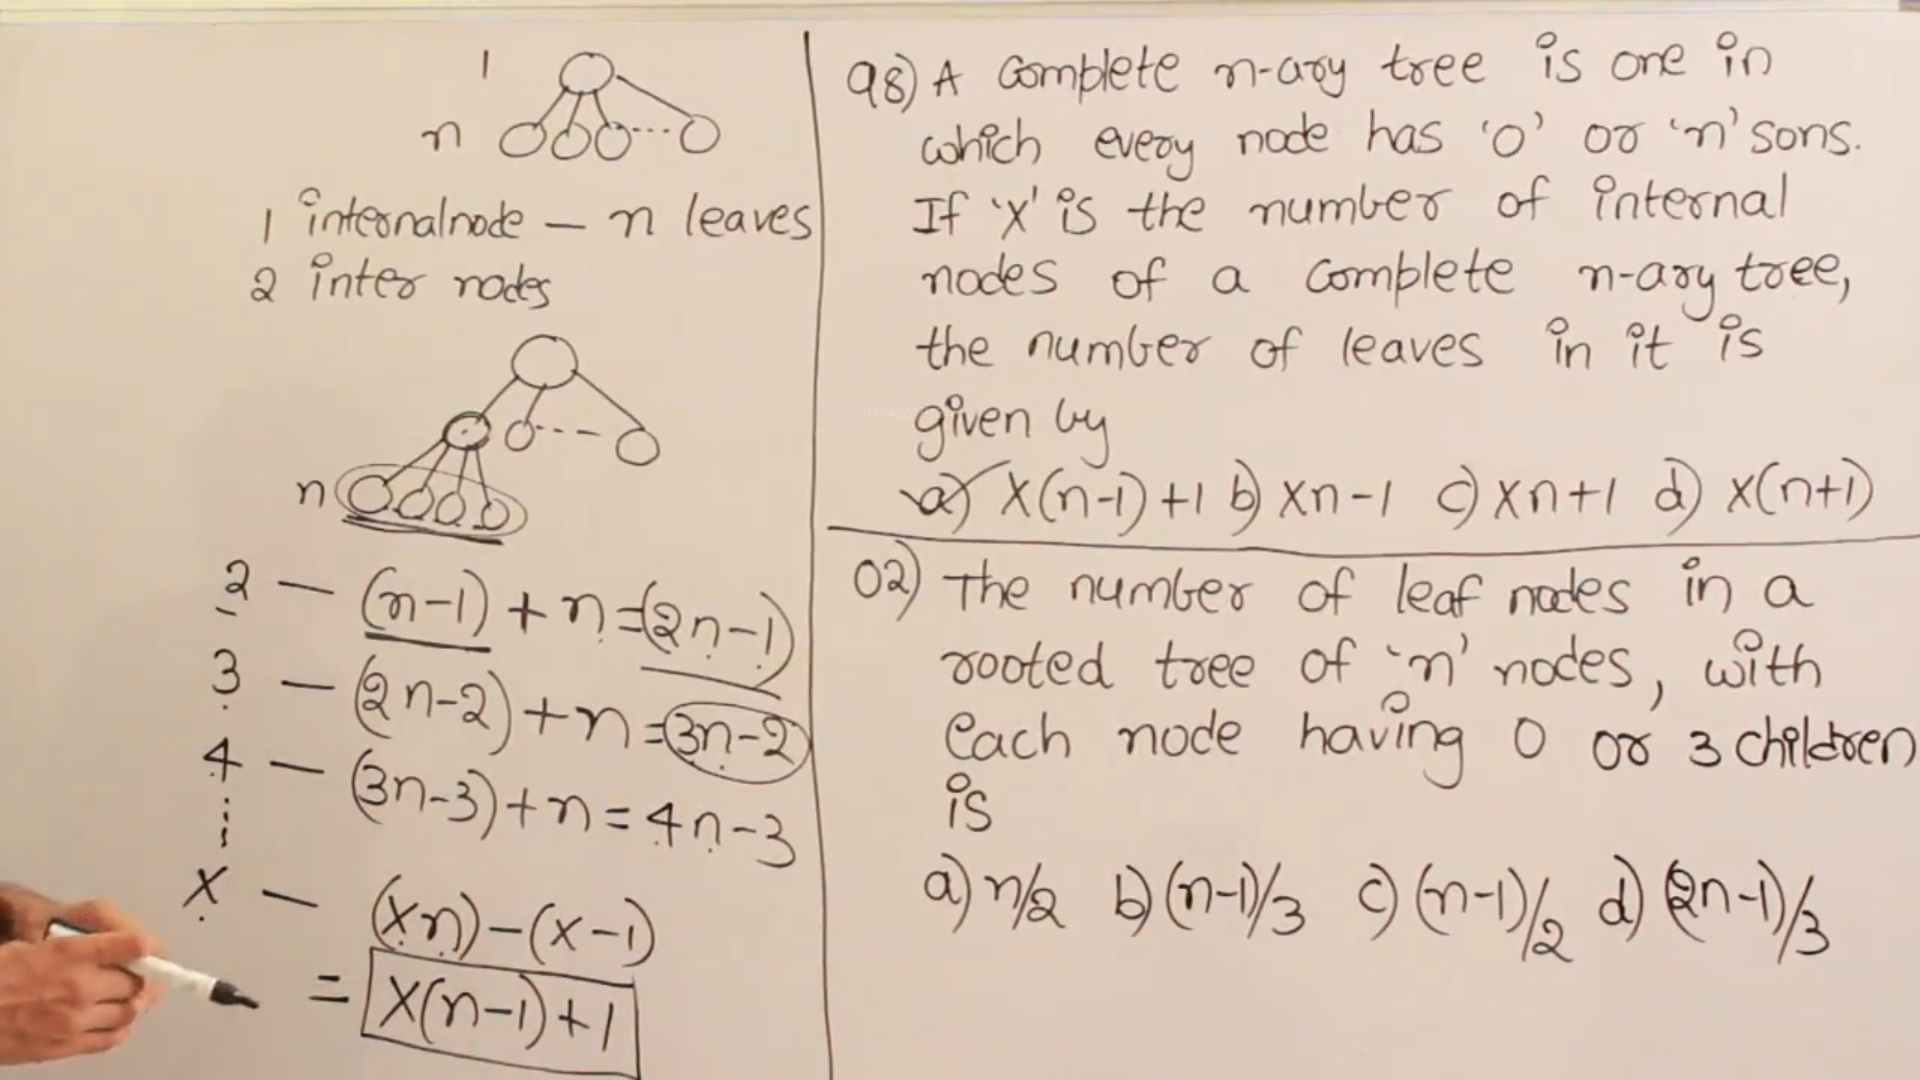 1
n
1 internalnode – n leaves
2 inter nodes
n
2 — (n-1) + n = (2n-1)
3 — (2n-2) + n = 3n-2
4 — (3n-3) + n = 4n-3
x — (xn) - (x-1)
= x(n-1)+1
98) A complete n-ary tree is one in
which every node has '0' or 'n' sons.
If 'x' is the number of internal
nodes of a complete n-ary tree,
the number of leaves in it is
given by
a) x(n-1)+1 b) xn-1 c) xn+1 d) x(n+1)
02) The number of leaf nodes in a
rooted tree of 'n' nodes, with
each node having 0 or 3 children
is
a) n/2 b) (n-1)/3 c) (n-1)/2 d) (2n-1)/3